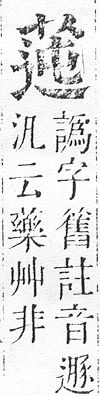 譌字舊註音
汎云藥艸非